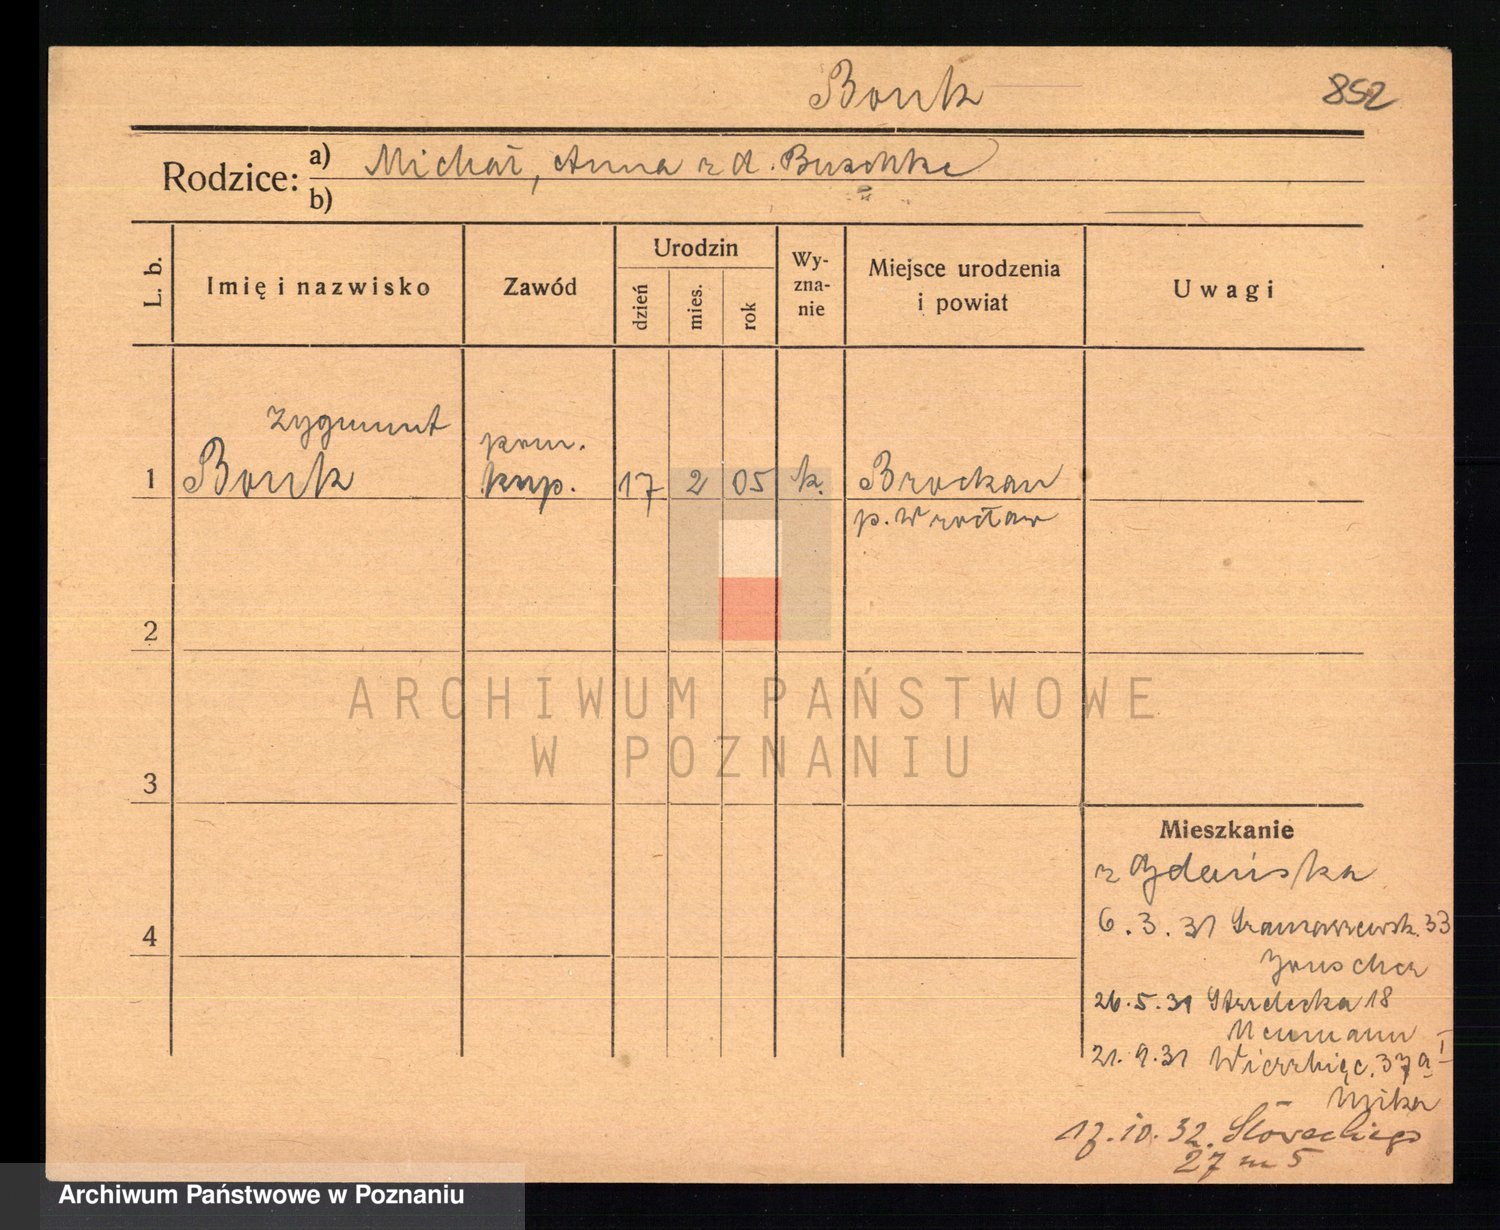 Bonk
852
Rodzice: a) Michał, Anna z d. Buschke
b)
L. b.
Imię i nazwisko
Zawód
Urodzin
dzień
mies.
rok
Wy-
zna-
nie
Miejsce urodzenia
i powiat
Uwagi
Zygmunt
pom.
1 Bonk kup. 17 2 05 k. Brockau
p. Wrocław
2
3
4
ARCHIWUM PAŃSTWOWE
W POZNANIU
Mieszkanie
z Gdańska
6.3.31 33
26.5.31 Strzelecka 18
Neumann
21.9.31 Wierzbięc. 37a I
17.10.32. Słowackiego
27 m 5
Archiwum Państwowe w Poznaniu